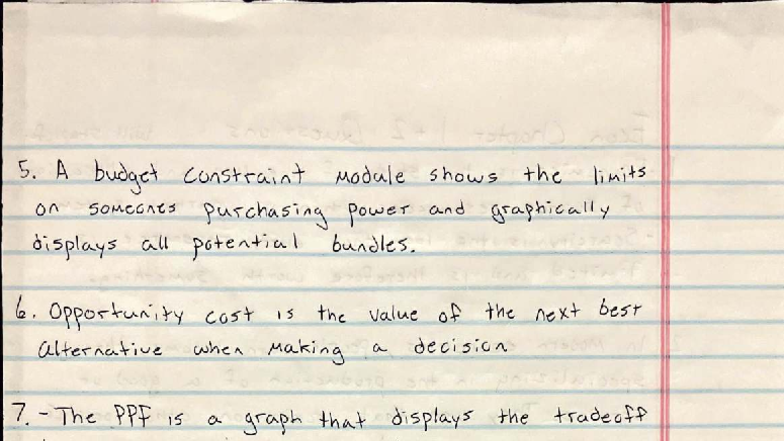 5. A budget constraint module shows the limits
on someones purchasing power and graphically
displays all potential bundles.
6. Opportunity cost is the value of the next best
alternative when making a decision
7. - The PPF is a graph that displays the tradeoff